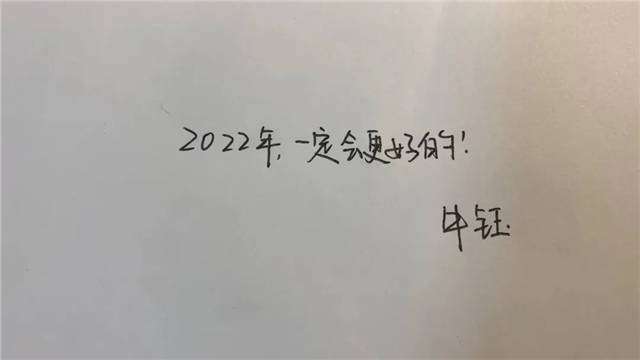 2022年,一定会更好的!
牛钰